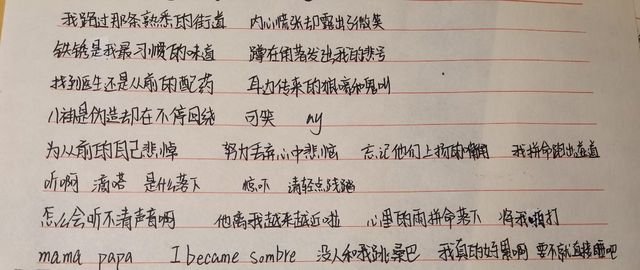 我路过那条熟悉的街道 内心慌张却露出了微笑
铁锈是我最习惯的味道 蹲在角落发出我的悲号
找到医生还是从前的配药 耳边传来的狼嚎和鬼叫
八神是伪造却在不停回绕 可笑 ay
为从前的自己悲悼 努力丢弃心中悲恼 忘记他们上扬的嘴角 我拼命跑出巷道
听啊 滴嗒 是什么落下 惊吓 请轻点践踏
怎么会听不清声音啊 他离我越来越近啦 心里的雨拼命落下 将我拍打
mama papa I became sombre 没人和我跳桑巴 我真的好累啊 要不就直接睡吧